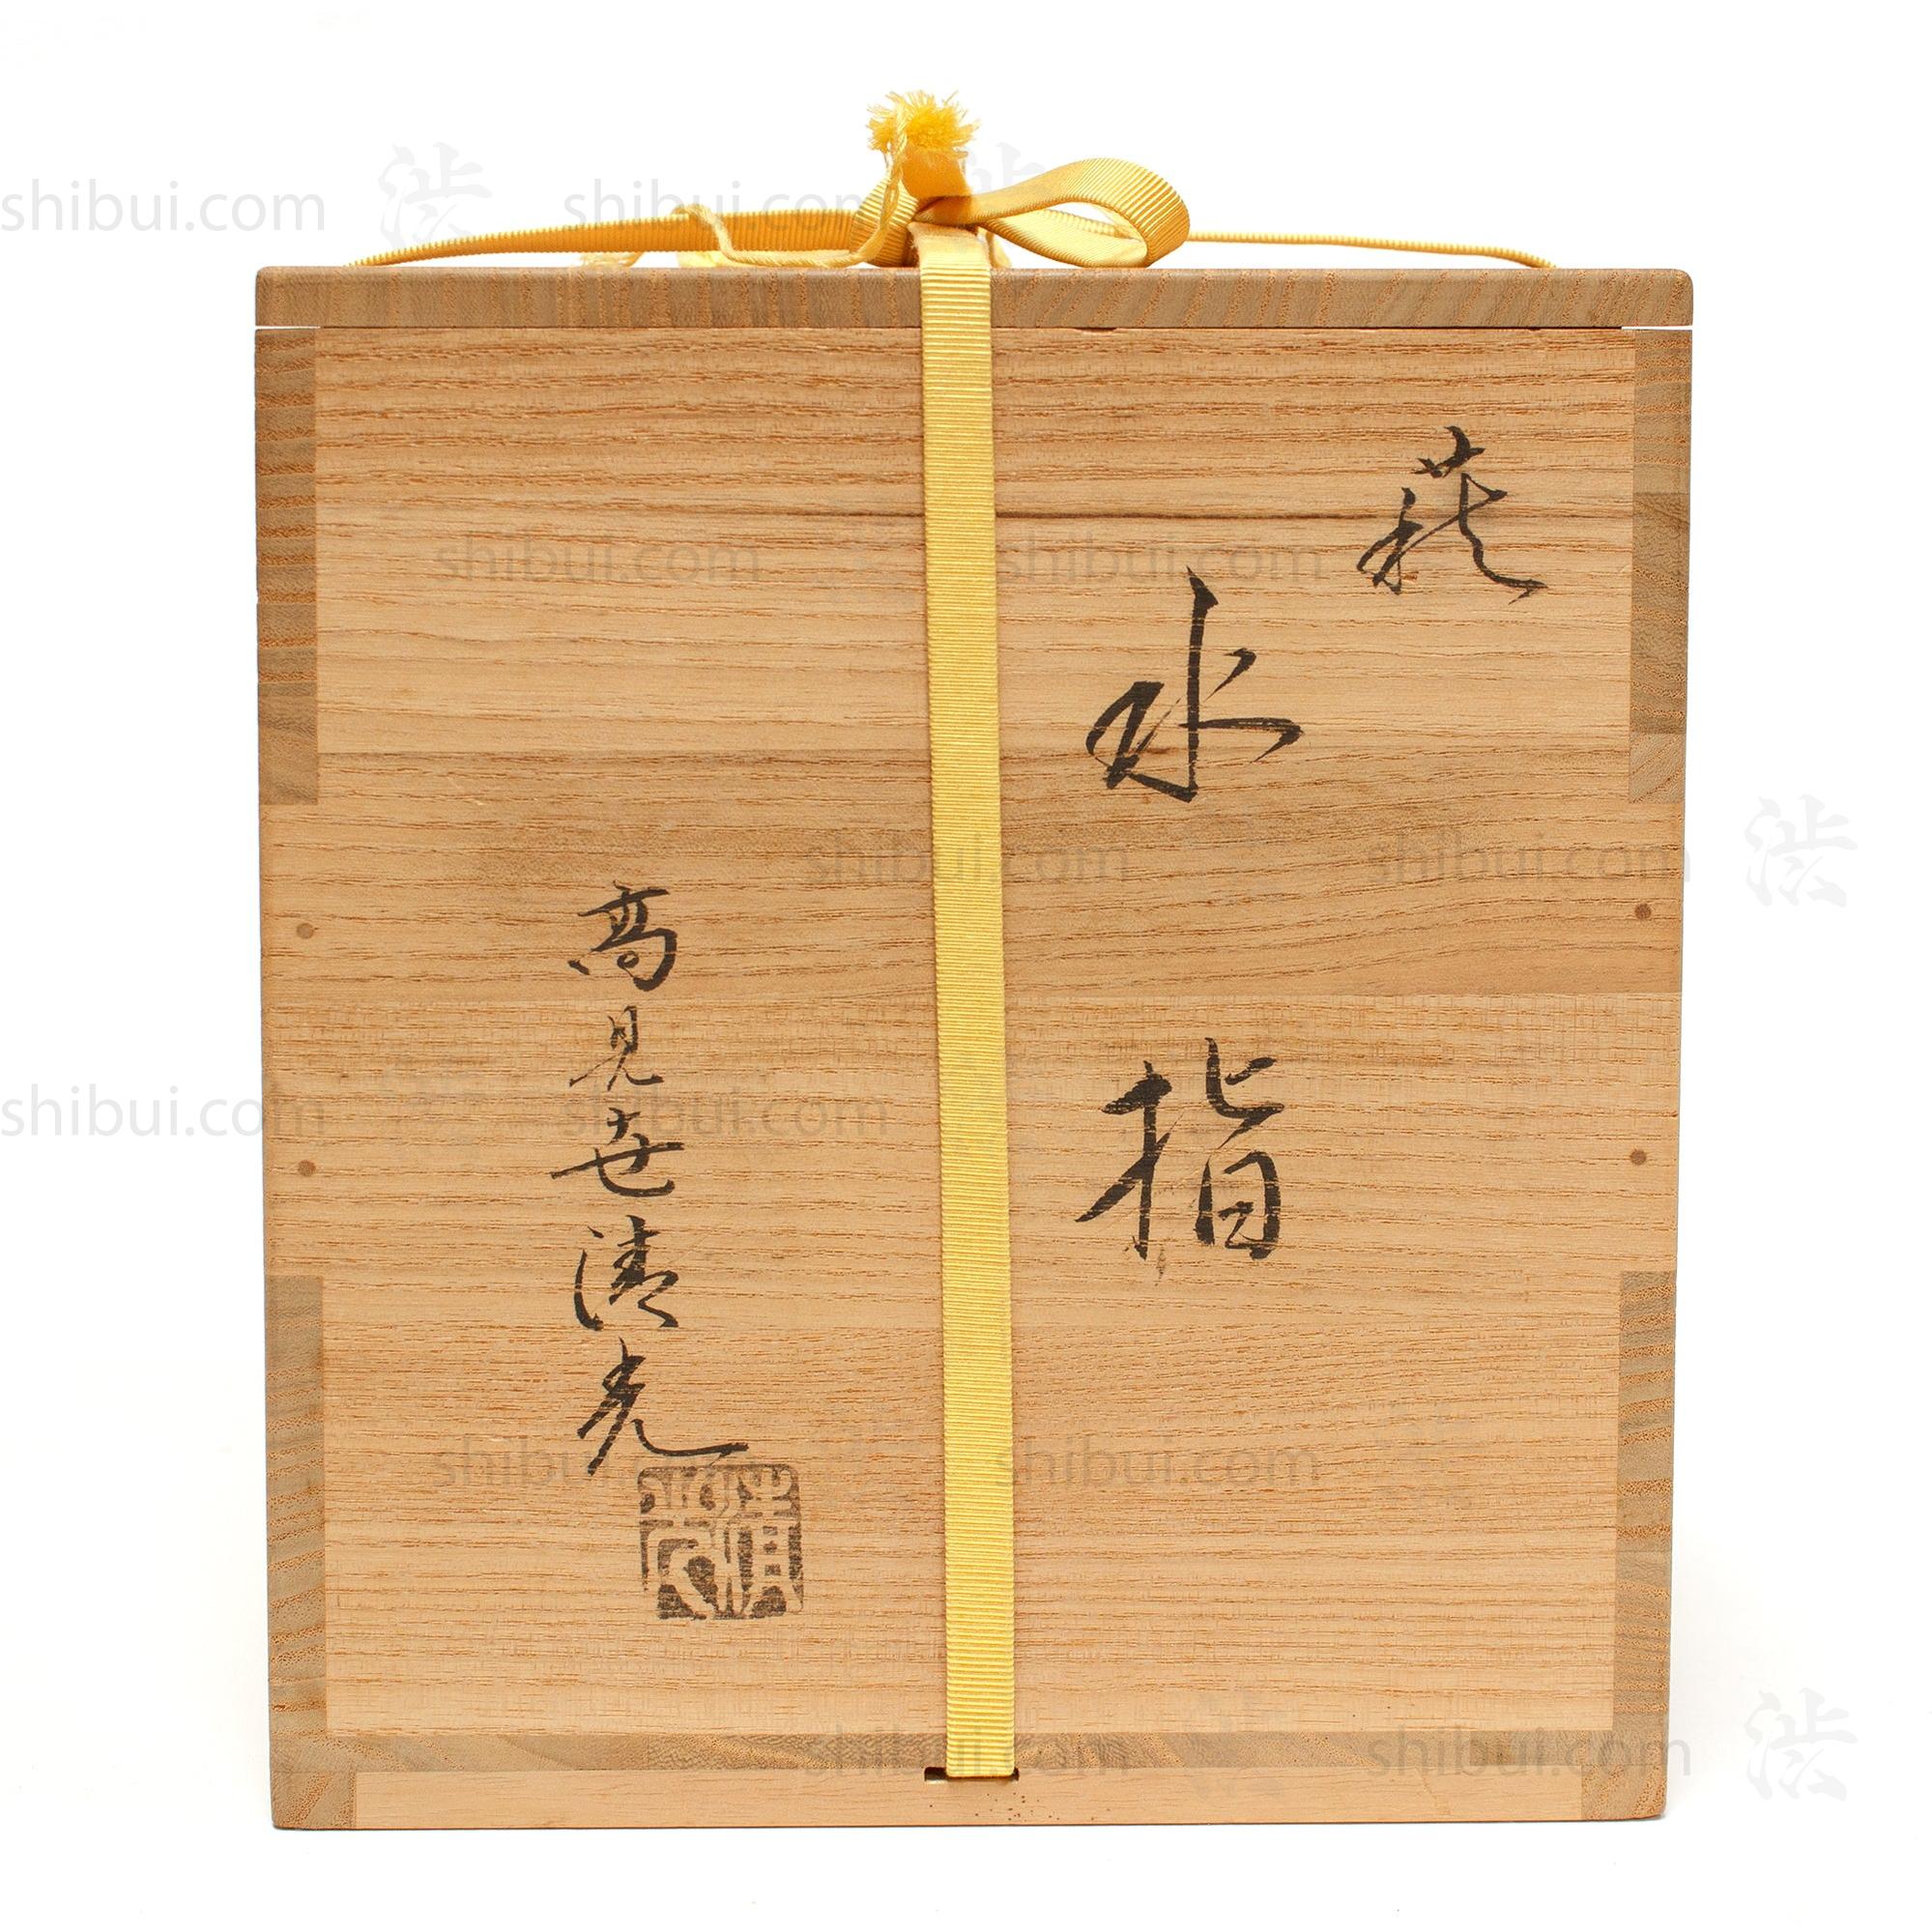 萩
水指
高見世清光
清光
shibui.com 渋 shibui.com 渋
shibui.com shibui.com
shibui.com shibui.com 渋
shibui.com shibui.com
shibui.com shibui.com
shibui.com shibui.com 渋